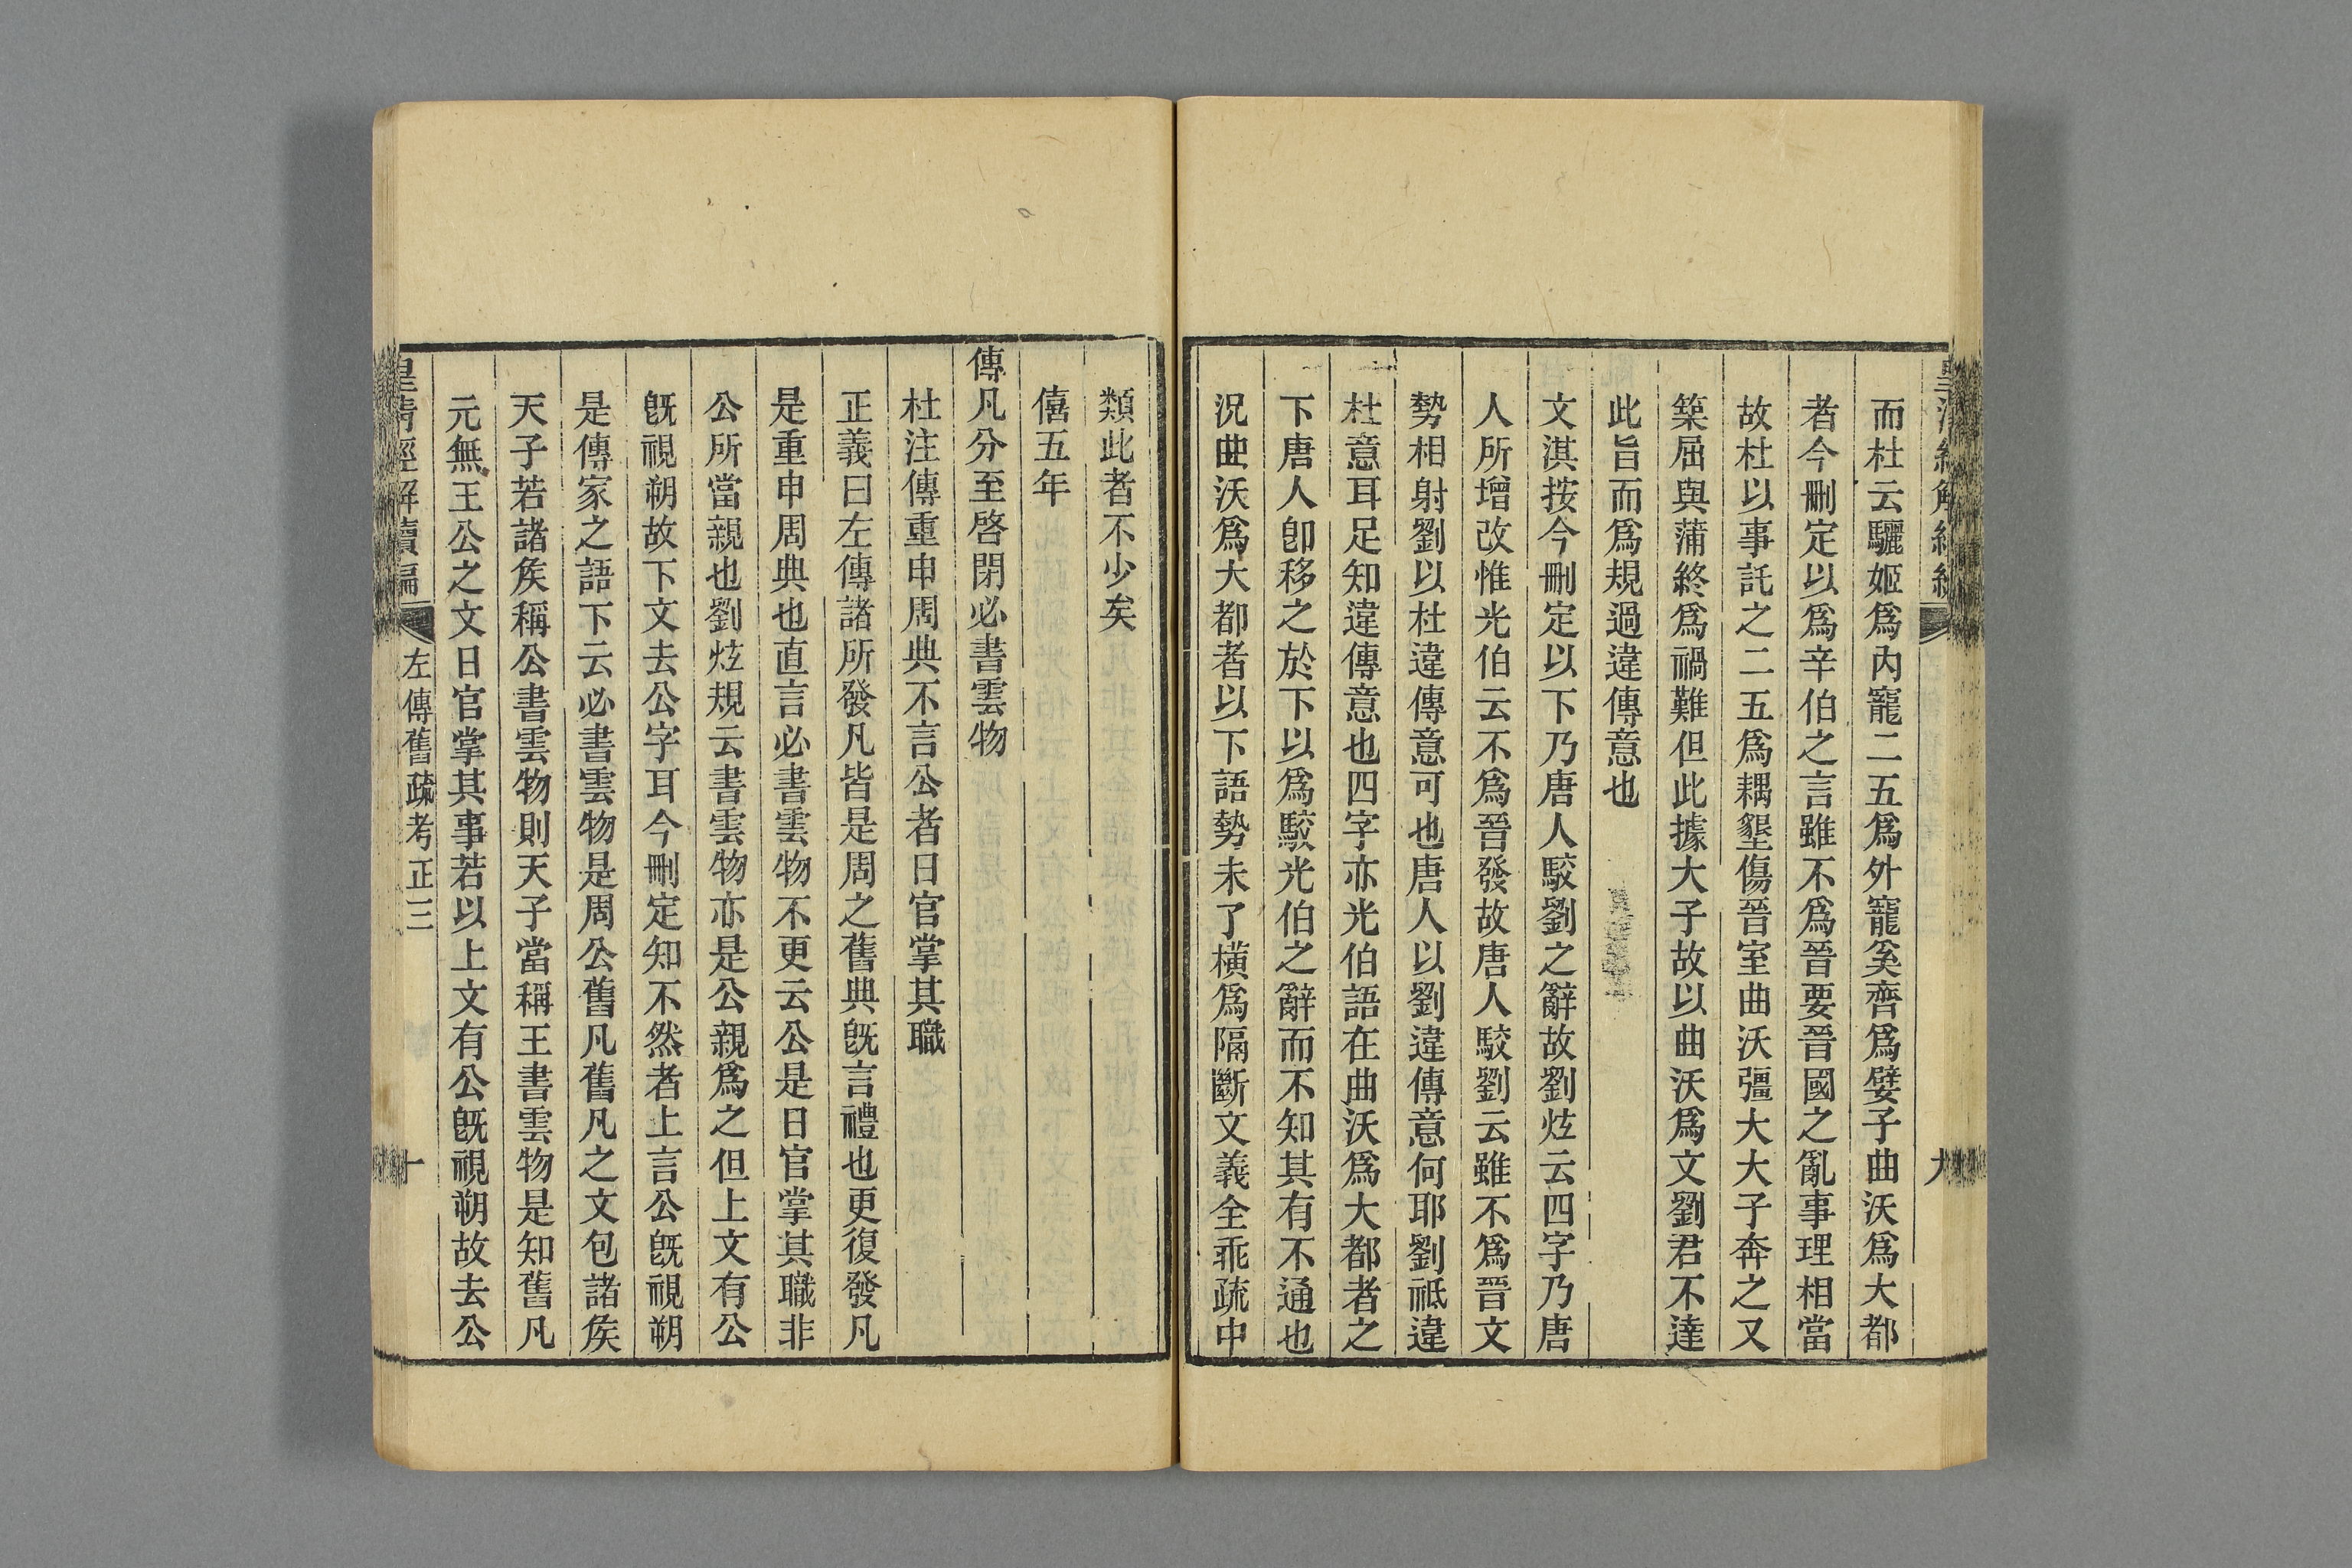 而杜云驪姬爲内寵二五爲外寵奚齊爲嬖子曲沃爲大都
者今刪定以爲辛伯之言雖不爲晉要晉國之亂事理相當
故杜以事託之二五爲耦墾傷晉室曲沃彊大大子奔之又
築屈與蒲終爲禍難但此據大子故以曲沃爲文劉君不達
此旨而爲規過違傳意也
文淇按今刪定以下乃唐人駮劉之辭故劉炫云四字乃唐
人所增改惟光伯云不爲晉發故唐人駮劉云雖不爲晉文
勢相射劉以杜違傳意可也唐人以劉違傳意何耶劉祗違
杜意耳足知違傳意也四字亦光伯語在曲沃爲大都者之
下唐人卽移之於下以爲駮光伯之辭而不知其有不通也
況曲沃爲大都者以下語勢未了橫爲隔斷文義全乖疏中
類此者不少矣
僖五年
傳凡分至啓閉必書雲物
杜注傳重申周典不言公者日官掌其職
正義曰左傳諸所發凡皆是周之舊典旣言禮也更復發凡
是重申周典也直言必書雲物不更云公是日官掌其職非
公所當親也劉炫規云書雲物亦是公親爲之但上文有公
旣視朔故下文去公字耳今刪定知不然者上言公旣視朔
是傳家之語下云必書雲物是周公舊凡舊凡之文包諸矦
天子若諸矦稱公書雲物則天子當稱王書雲物是知舊凡
元無王公之文日官掌其事若以上文有公旣視朔故去公
皇清經解續編 左傳舊疏考正三 十